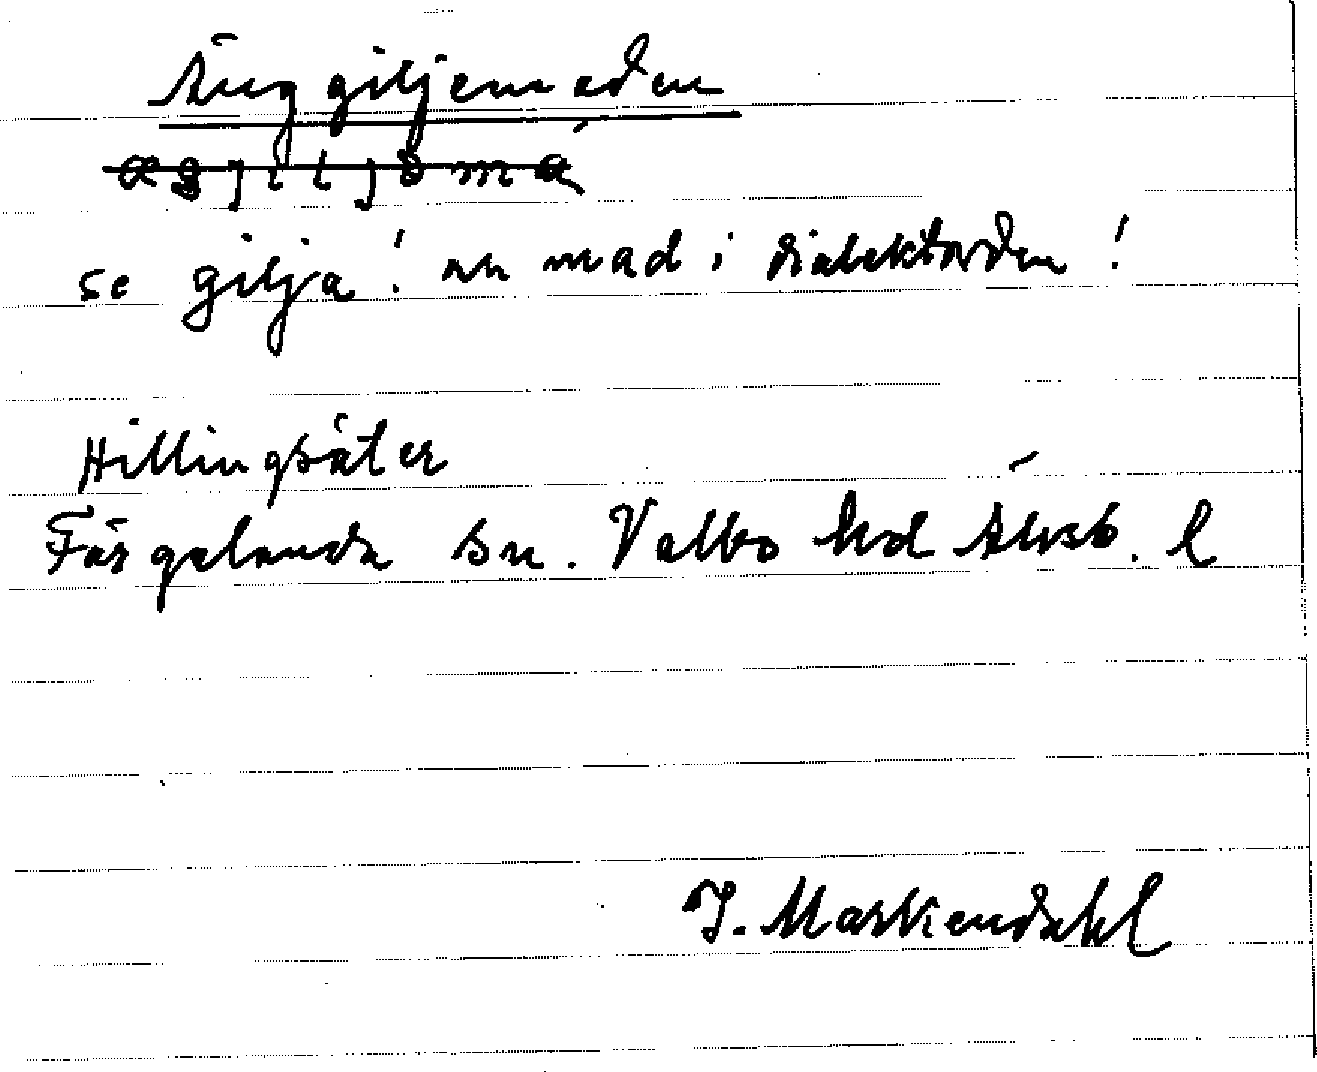 Änggiljemaden
se gilja! an mad i dialektorden!
Hillingsäter
Färgelanda sn. Valbo hd Älvsb. l
J. Markendahl